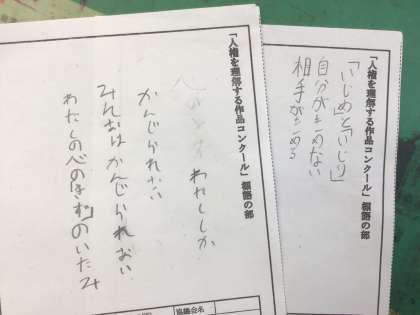 「人権を理解する作品コンクール」標語の部
「いじめ」と「いじり」
自分がきめない
相手がきめる
「人権を理解する作品コンクール」標語の部
わたししか
かんじられない
みんなはかんじられない
わたしの心の「きず」のいたみ
協議会名